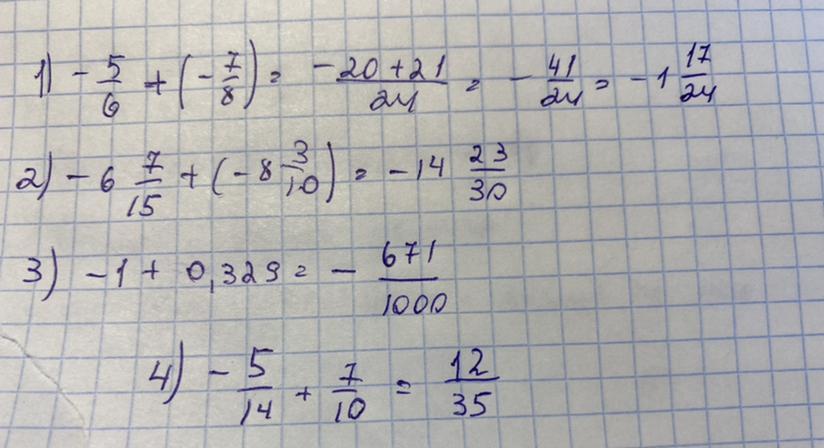 1) - 5/6 + (- 7/8) = - 20 + 21 / 24 = - 41/24 = - 1 17/24
2) - 6 7/15 + (- 8 3/10) = - 14 23/30
3) - 1 + 0,329 = - 671/1000
4) - 5/14 + 7/10 = 12/35